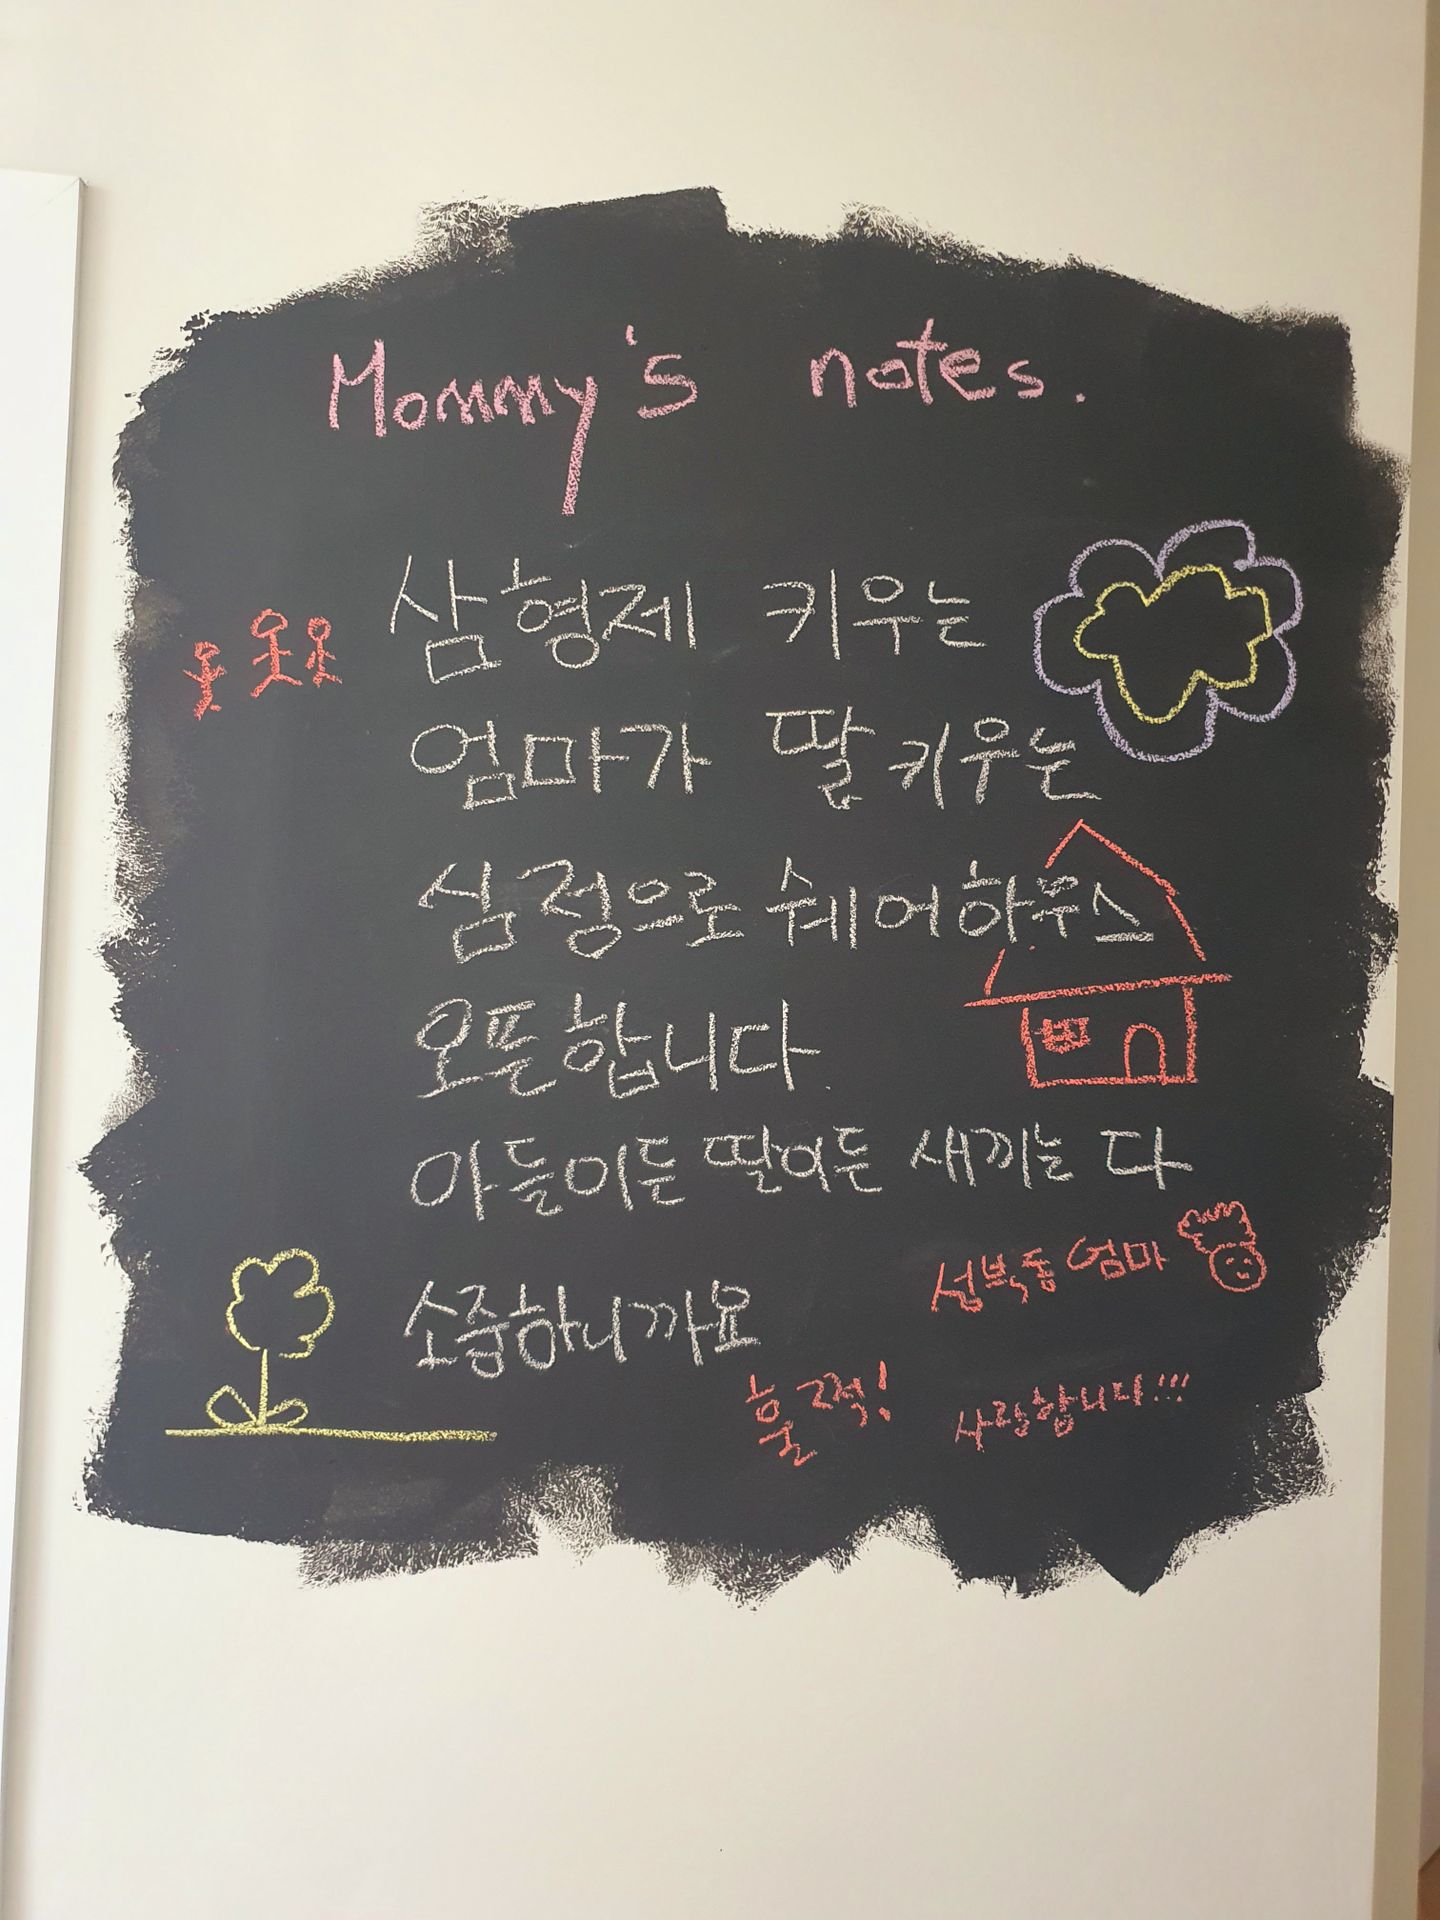 Mommy's notes.
삼형제 키우는
엄마가 딸 키우는
심정으로 쉐어하우스
오픈합니다
아들이든 딸이든 새끼는 다
소중하니까요
성북동 엄마
훌쩍!
사랑합니다!!!